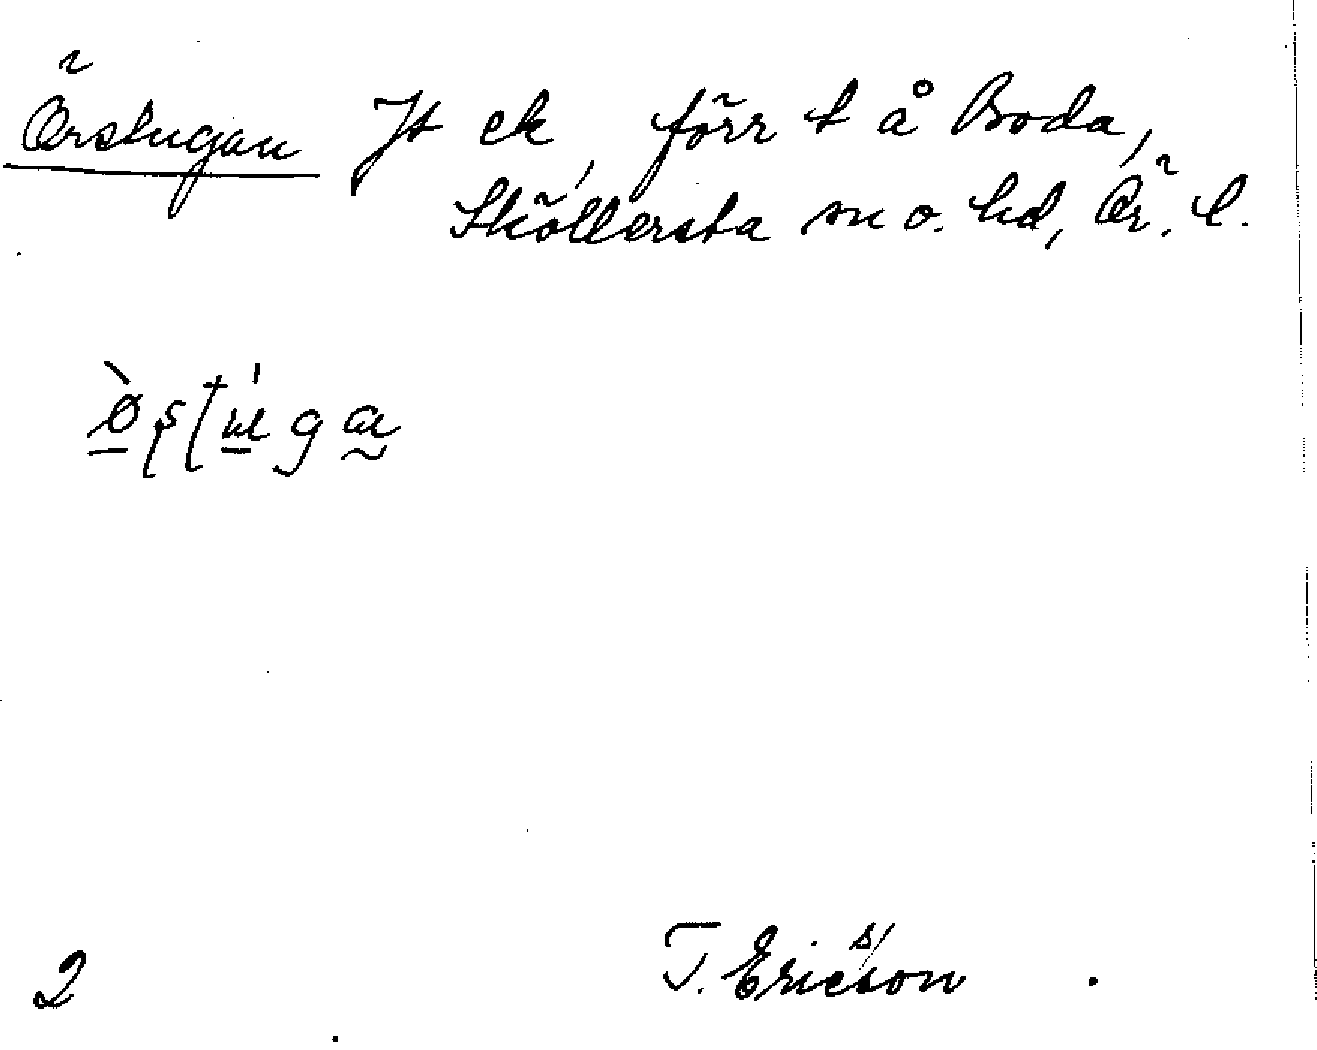 Örstugan Jt ek, förr t å Boda,
Sköllersta sn o. hd, Ör. l.
2 T. Ericsson